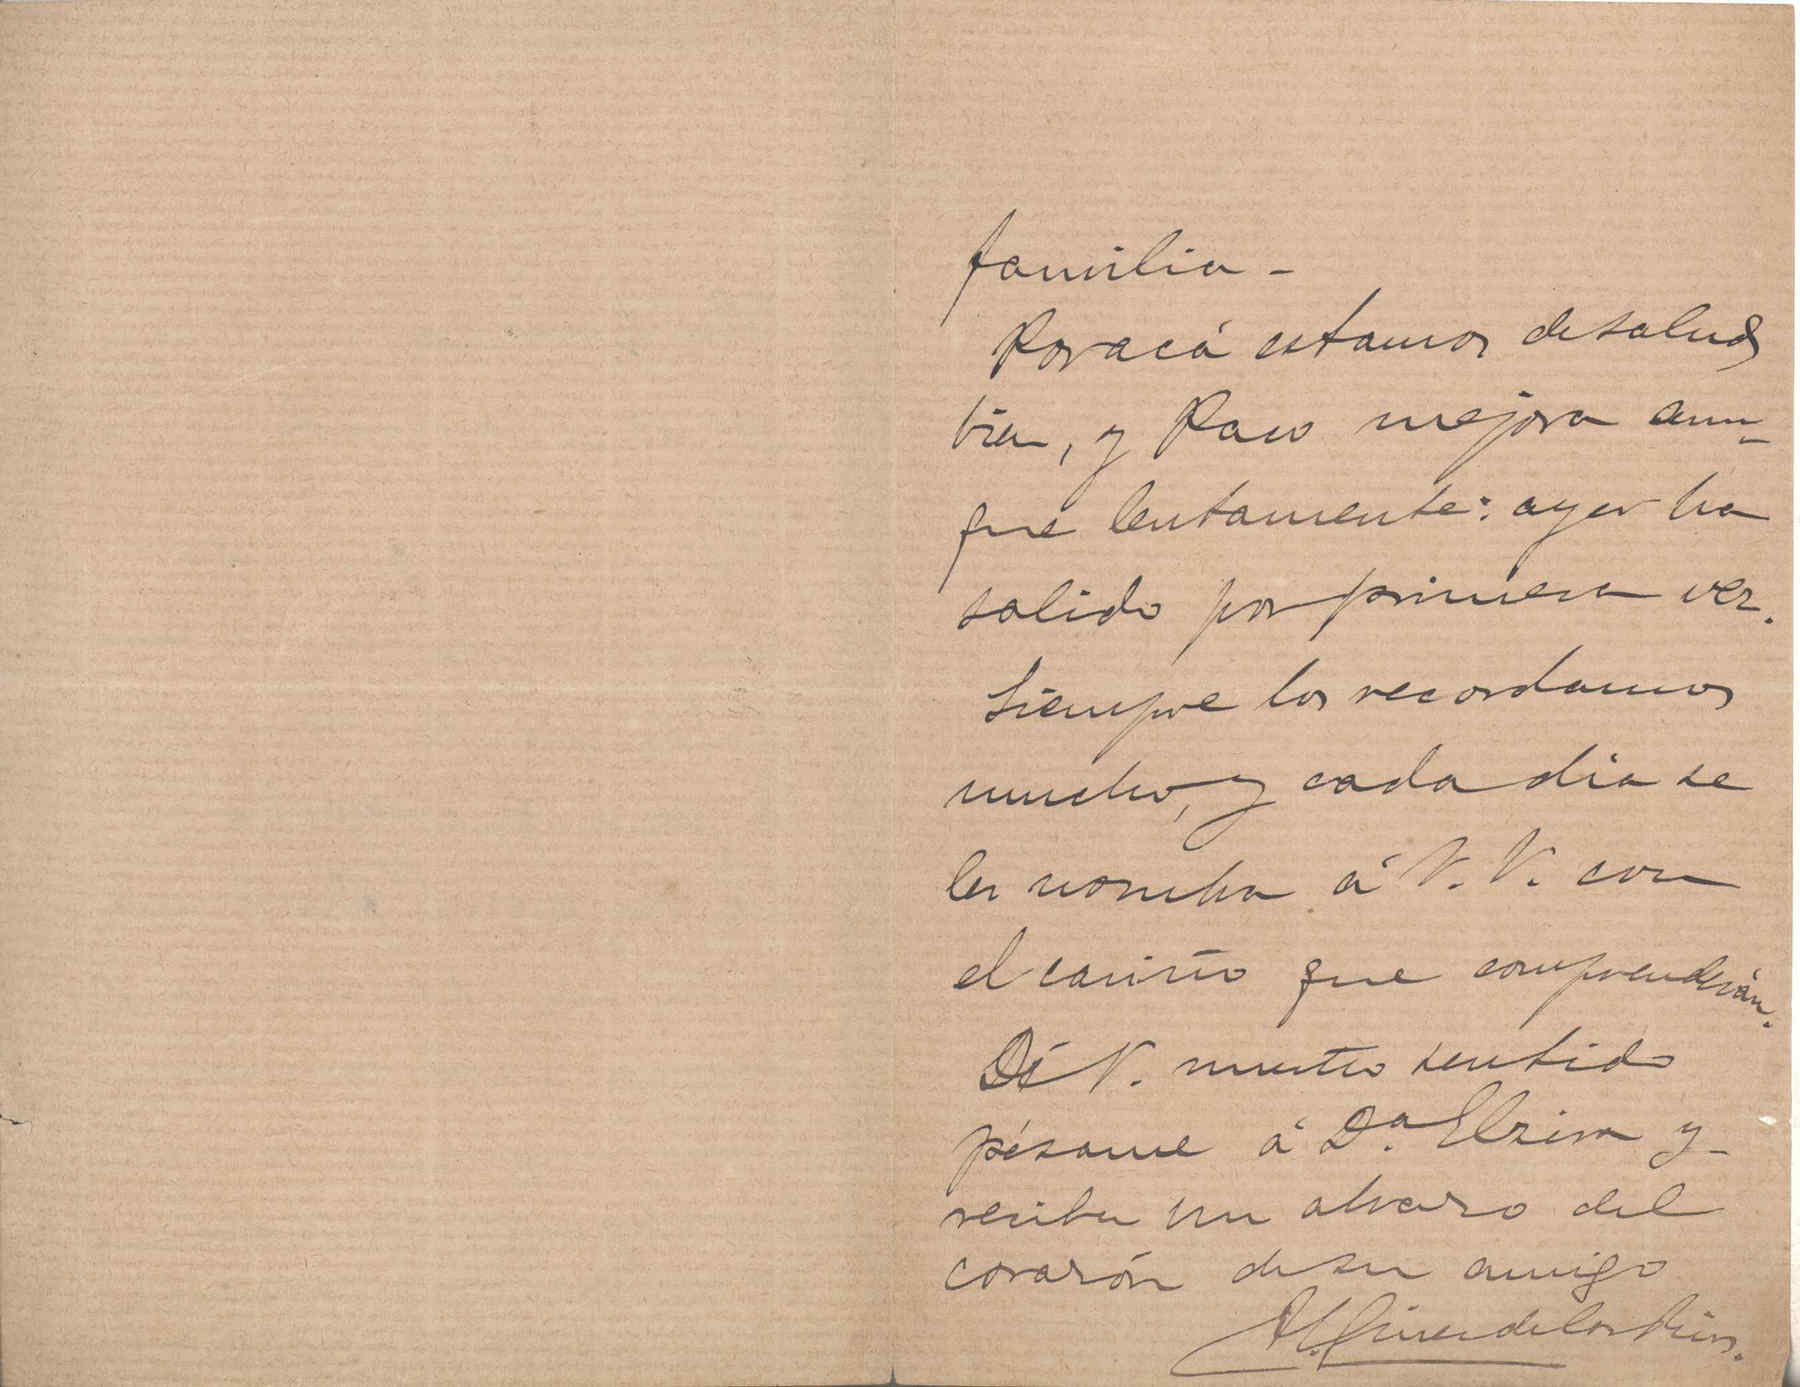 familia -
Por acá estamos de salud
bien, y Paco mejora aun-
que lentamente: ayer ha
salido por primera vez.
Siempre los recordamos
mucho, y cada dia se
les nombra á V. V. con
el cariño que comprenderán.
Dé V. nuestro sentido
pésame á D.ª Elzira y
reciba un abrazo del
corazón de su amigo
H. Giner de los Rios.